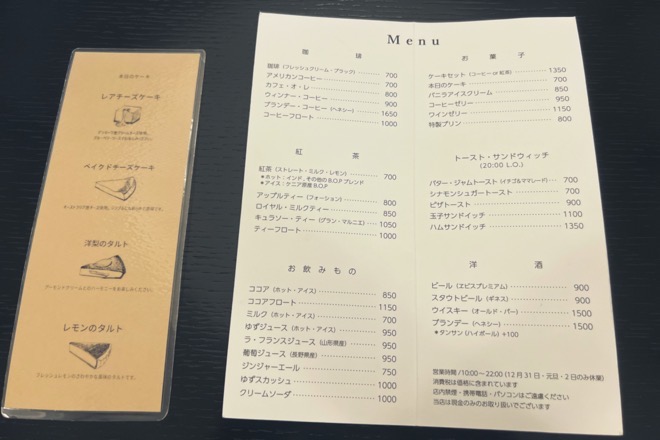 本日のケーキ
レアチーズケーキ
ベイクドチーズケーキ
洋梨のタルト
レモンのタルト
Menu
珈琲
珈琲 (フレッシュクリーム・ブラック) 700
アメリカンコーヒー 700
カフェ・オ・レ 700
ウィンナー・コーヒー 800
ブランデー・コーヒー (ヘネシー) 900
コーヒーフロート 1650
1000
紅茶
紅茶 (ストレート・ミルク・レモン) 700
★ホット:インド、その他のB.O.Pブレンド
★アイス:ケニア原産B.O.P
アップルティー (フォーション) 800
ロイヤル・ミルクティー 850
キュラソー・ティー (グラン・マルニエ) 1050
ティーフロート 1000
お飲みもの
ココア (ホット・アイス) 850
ココアフロート 1150
ミルク (ホット・アイス) 700
ゆずジュース (ホット・アイス) 950
ラ・フランスジュース (山形県産) 950
葡萄ジュース (長野県産) 950
ジンジャーエール 750
ゆずスカッシュ 1000
クリームソーダ 1000
お菓子
ケーキセット (コーヒー or 紅茶) 1350
本日のケーキ 700
バニラアイスクリーム 850
コーヒーゼリー 950
ワインゼリー 1150
特製プリン 800
トースト・サンドウィッチ
(20:00 L.O.)
バター・ジャムトースト (イチゴ&ママレード) 700
シナモンシュガートースト 700
ピザトースト 900
玉子サンドイッチ 1100
ハムサンドイッチ 1350
洋酒
ビール (ヱビスプレミアム) 900
スタウトビール (ギネス) 900
ウイスキー (オールド・パー) 1500
ブランデー (ヘネシー) 1500
★タンサン (ハイボール) +100
営業時間 /10:00~22:00 (12月31日・元旦・2日のみ休業)
消費税は価格に含まれています
店内禁煙・携帯電話・パソコンはご遠慮ください
当店は現金のみのお取り扱いでございます